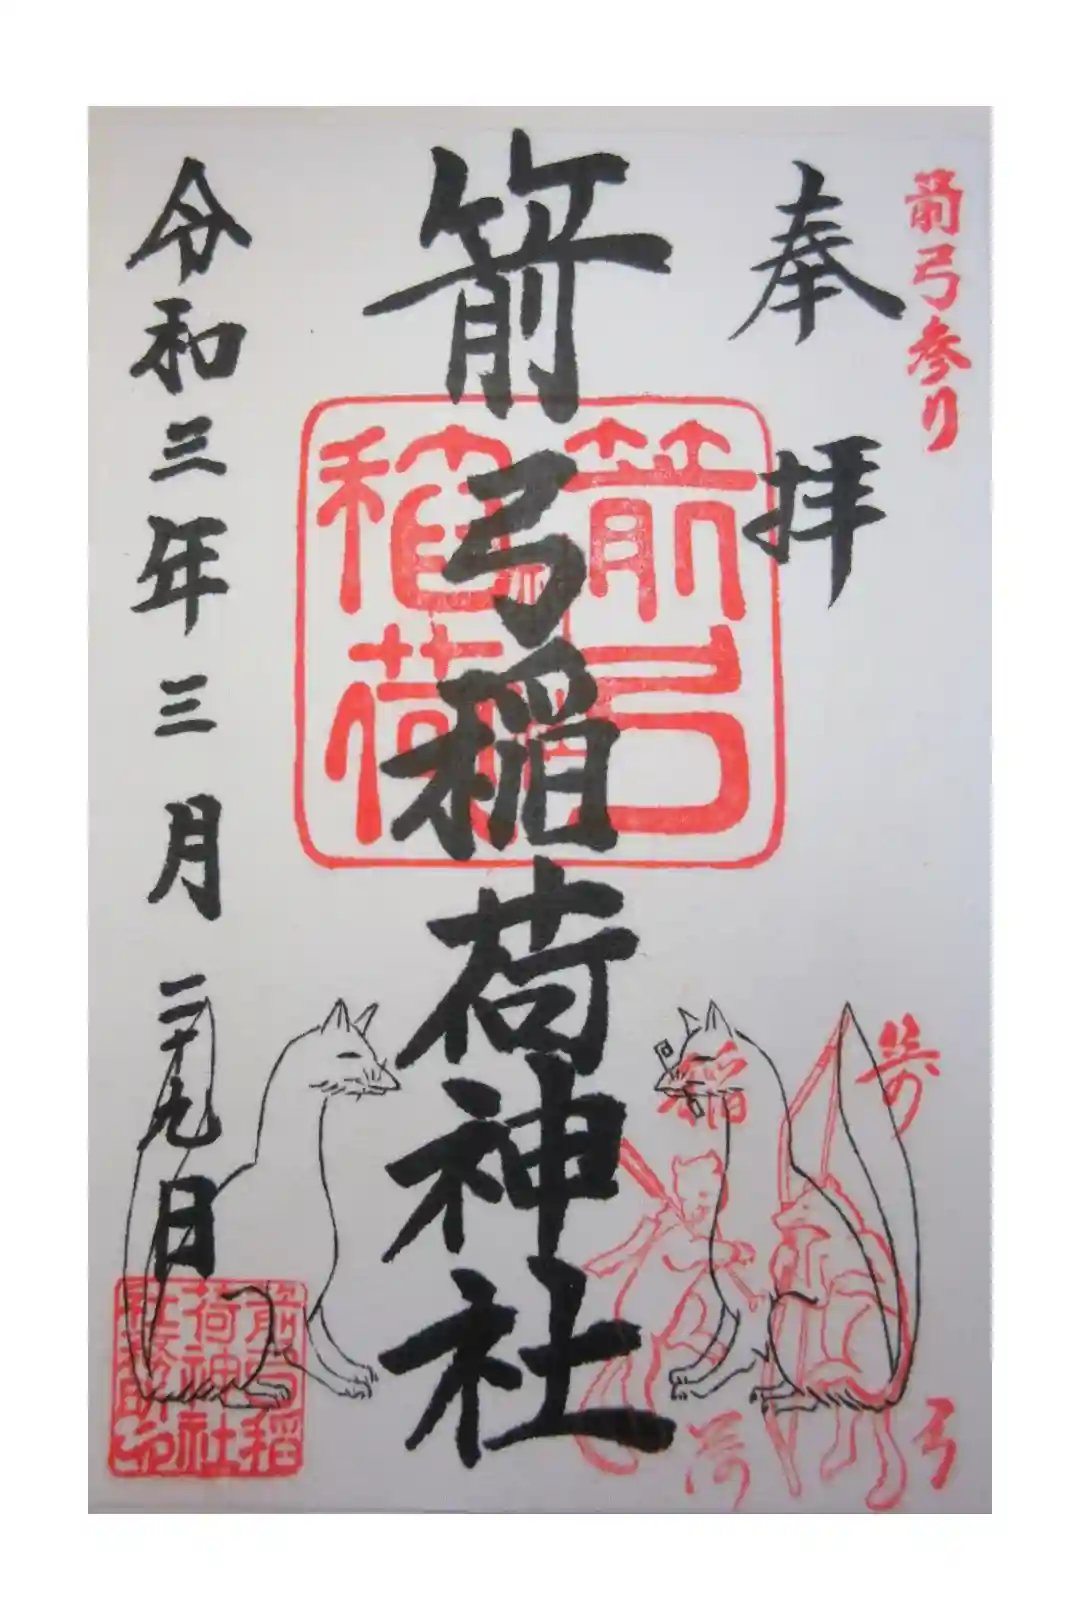 箭弓参り
奉拝
箭弓稲荷神社
箭弓
稲荷
令和三年三月二十九日
箭弓
稲荷
箭弓稲
荷神社